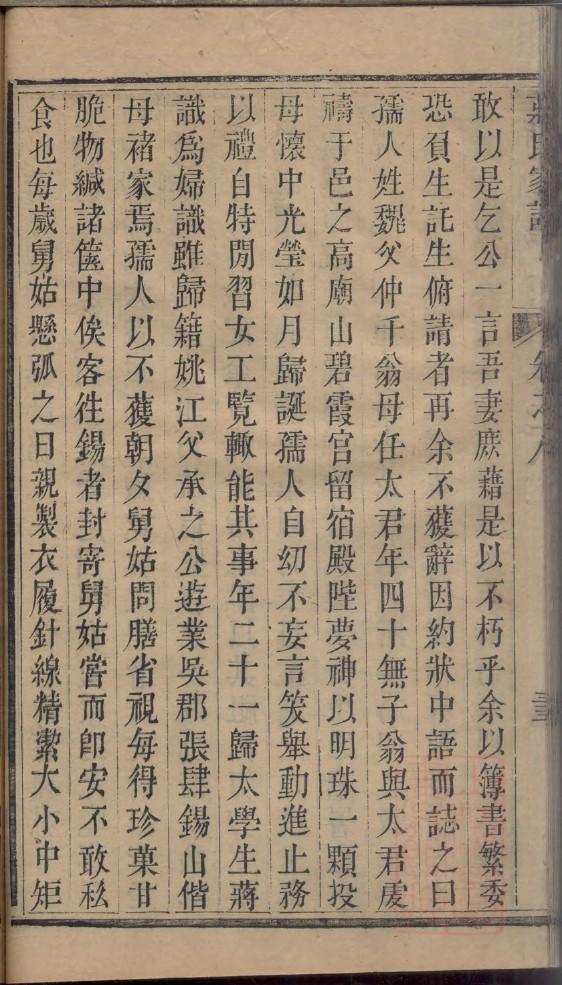 敢以是乞公一言吾妻庶藉是以不朽乎余以簿書繁委
恐負生託生俯請者再余不獲辭因約狀中語而誌之曰
孺人姓魏父仲千翁母任太君年四十無子翁與太君虔
禱于邑之高廟山碧霞宮留宿殿陛夢神以明珠一顆投
母懷中光瑩如月歸誕孺人自幼不妄言笑舉動進止務
以禮自特閒習女工覽輙能其事年二十一歸太學生蔣
識爲婦識雖歸籍姚江父承之公遊業吳郡張肆錫山偕
母褚家焉孺人以不獲朝夕舅姑問膳省視每得珍菓甘
脆物緘諸篋中俟客徃錫者封寄舅姑嘗而卽安不敢私
食也每歲舅姑懸弧之日親製衣履針線精潔大小中矩